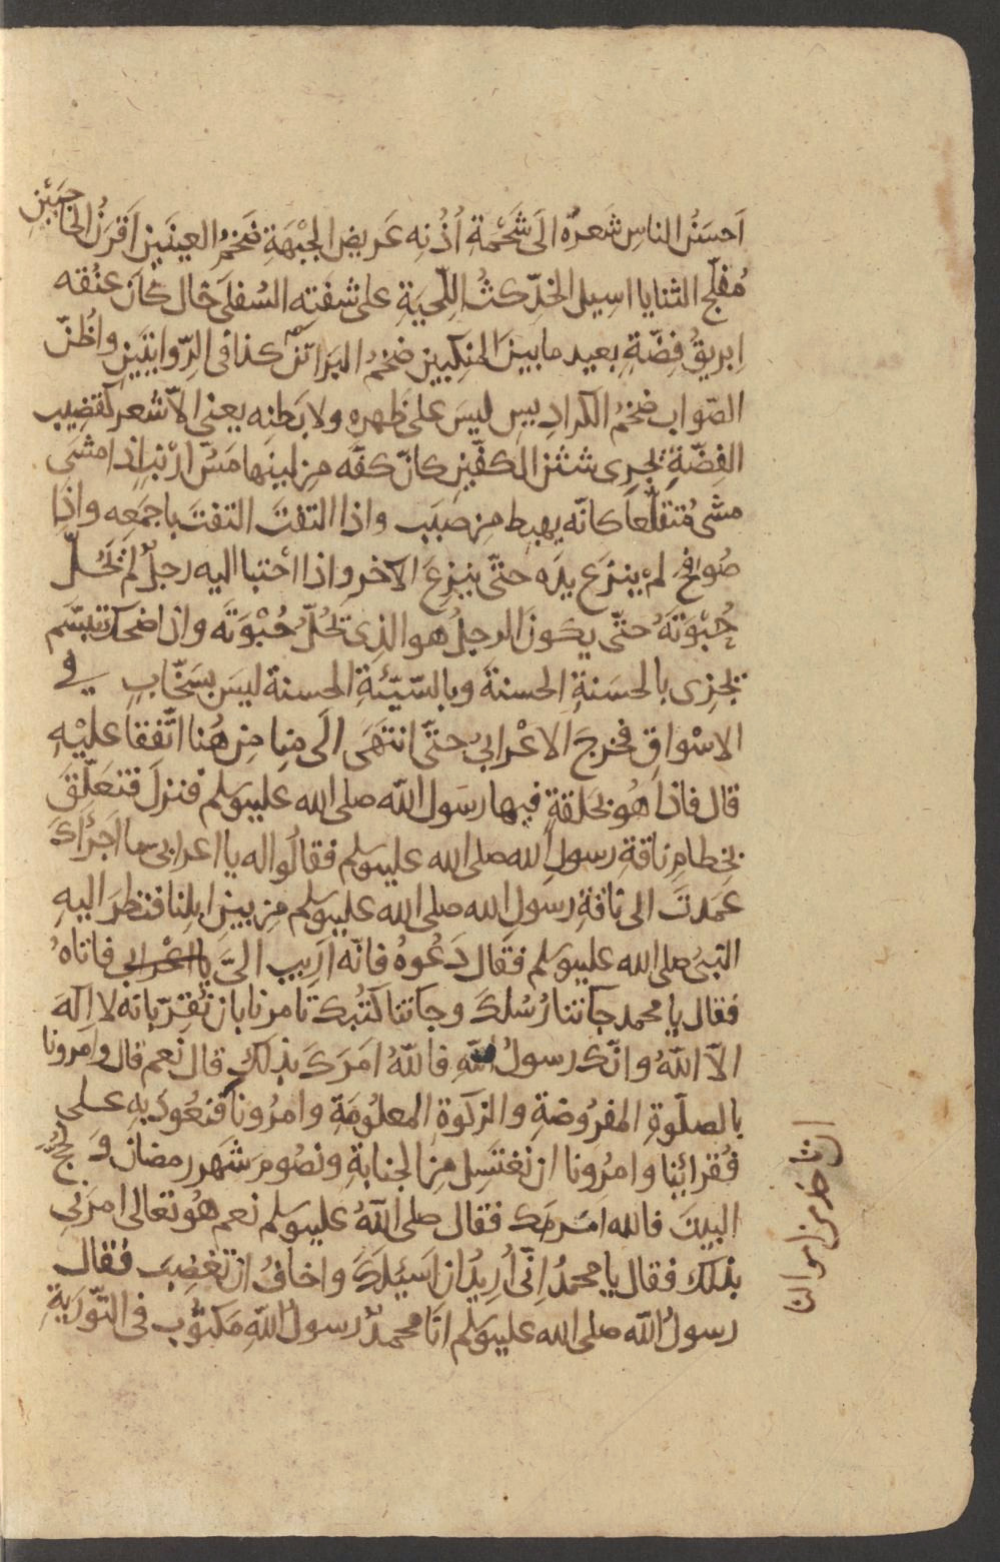 اَحسَنُ الناسِ شَعرُه الَى شَحْمَةِ اُذُنِه عَريض الجَبْهَةِ ضَخمُ العينَين اَقرَنُ الحاجبَيْنِ
مُفلّج الثنايا اسِيل الخدِّ كثُّ اللّحيَةِ على شفَتِه السُفلَى خال كاَن عنُقه
اِبريقُ فِضّةٍ بعيد ما بينَ المنكِبين ضخمُ البَراثن كذا فى الرّوايتَينِ واظُنّ
الصّواب ضخمُ الكرادِيسِ ليسَ على ظهرِهِ ولا بَطنِه يعنى الاّ شعر كقضِيب
الفِضّةِ يجرِى شثن الكفّين كانّ كفّه من لينِها مَسّ ارْنب اذا مشَى
مشى مُتقلّعاً كانّه يهبِط مِن صَبَب واذا التفَتَ التفتَ باجمَعِه واذا
صُوافِح لمْ ينزَع يدَه حتّى ينزِعَ الآخر واذا احْتبا اليه رجلٌ لم يَحُلّ
حُبْوَتَهُ حتّى يكونَ الرجلُ هو الذِى يَحُلّ حُبْوَتَه واذا ضحك تبسّم
يجزِى بالحسَنةِ الحسنةَ وبالسّيّئةِ الحسنة ليسَ بسَخّابٍ فى
الاسْواقِ فخرجَ الاعْرابىُ حتّى انتهَى الَى مِنا مِن هُنا اتّفقا عليْهِ
قال فاذا هُو بحَلقةٍ فيها رسَول الله صلى الله عليه وسلم فنزلَ فتعَلّقَ
بخِطامِ ناقةِ رسولِ الله صلى الله عليه وسلم فقالُوا له يا اعرابى ما اجْرأكَ
عَمَدتَ الى ناقةِ رسولِ الله صلى الله عليه وسلم مِن بينِ ابِلنا فنظرَ اليهِ
النبىُ صلى الله عليه وسلم فقال دَعُوهُ فانّه اَرِيب الىَّ يا اعرابى فاتاهُ
فقال يا محمد جاتنا رُسُلكَ وجاتنا كتُبك تامرنا بان نُقِرّ بانه لا الهَ
الاّ اللهُ وانّك رسولُ اللهِ فاللهُ امَرَكَ بذلك قال نعم قال وامرونا
بالصلَوةِ المفرُوضةِ والزكوةِ المعلُومَةِ وامرُونا فنعُود به على
فُقرائِنا وامرُونا ان نغتَسِل مِن الجنابةِ ونصُومَ شَهرَ رمضان وَنحجّ
البيتَ فالله امَرك فقال صلى اللهُ عليه وسلم نعم هُو تعالى امرَنِى
بذلك فقال يا محمدُ اِنّى اُرِيدُ ان اَسئِلكَ واخافُ ان تغضِبَ فقال
رسولُ اللّه صلى الله عليه وسلم انَا محمدٌ رسولُ اللهِ مَكتوُب فى التّورَيةِ